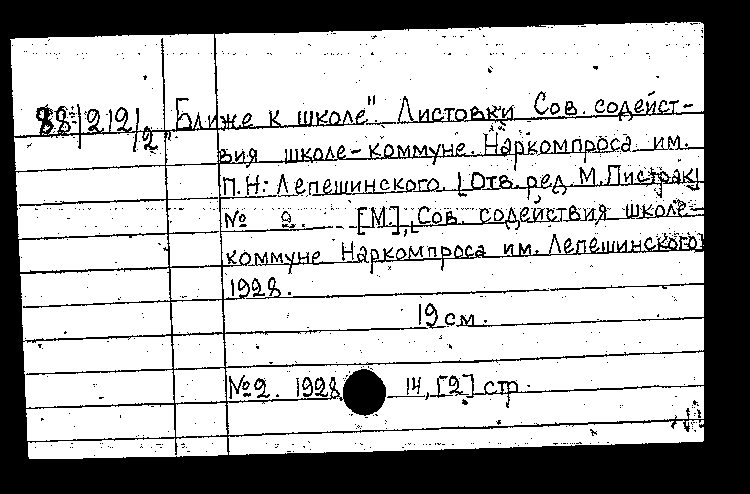 88/212/2 "Ближе к школе". Листовки Сов. содейст-
вия школе-коммуне. Наркомпроса им.
П.Н. Лепешинского. [Отв. ред. М. Пистрак]
№ 2. [М.], [Сов. содействия школе-
коммуне Наркомпроса им. Лепешинского]
1928.
19 см.
№2. 1928 14, [2] стр.